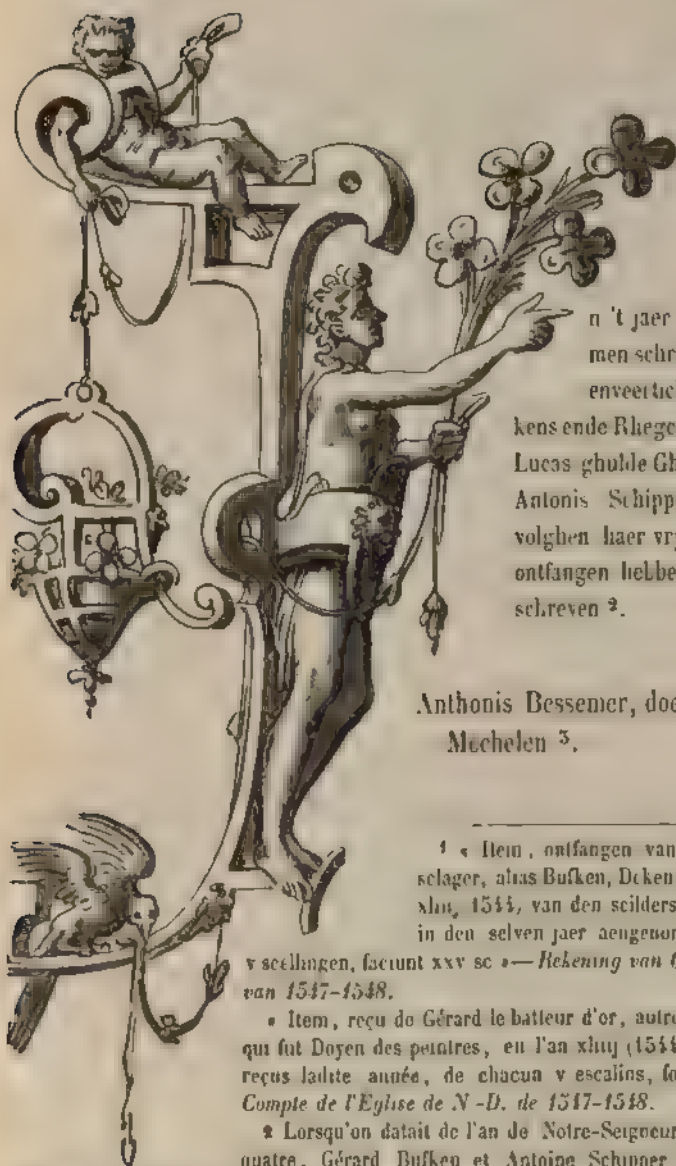 n 't jaer
men schr
enveertic
kens ende Rhege
Lucas ghulde Gh
Antonis Schipp
volghen haer vry
ontfangen hebbe
schreven ².
Anthonis Bessemer, doe
Mechelen ³.
¹ « Item, ontfangen van
selager, alias Bufken, Deken
xliiij, 1544, van den scilders
in den selven jaer aengenor
v scellingen, faciunt xxv sc »— Rekening van
van 1547-1548.
« Item, reçu de Gérard le batteur d'or, autre
qui fut Doyen des peintres, en l'an xliiij (1544
reçus ladite année, de chacun v escalins, fo
Compte de l'Eglise de N.-D. de 1547-1548.
² Lorsqu'on datait de l'an de Notre-Seigneur
quatre, Gérard Bufken et Antoine Schipper